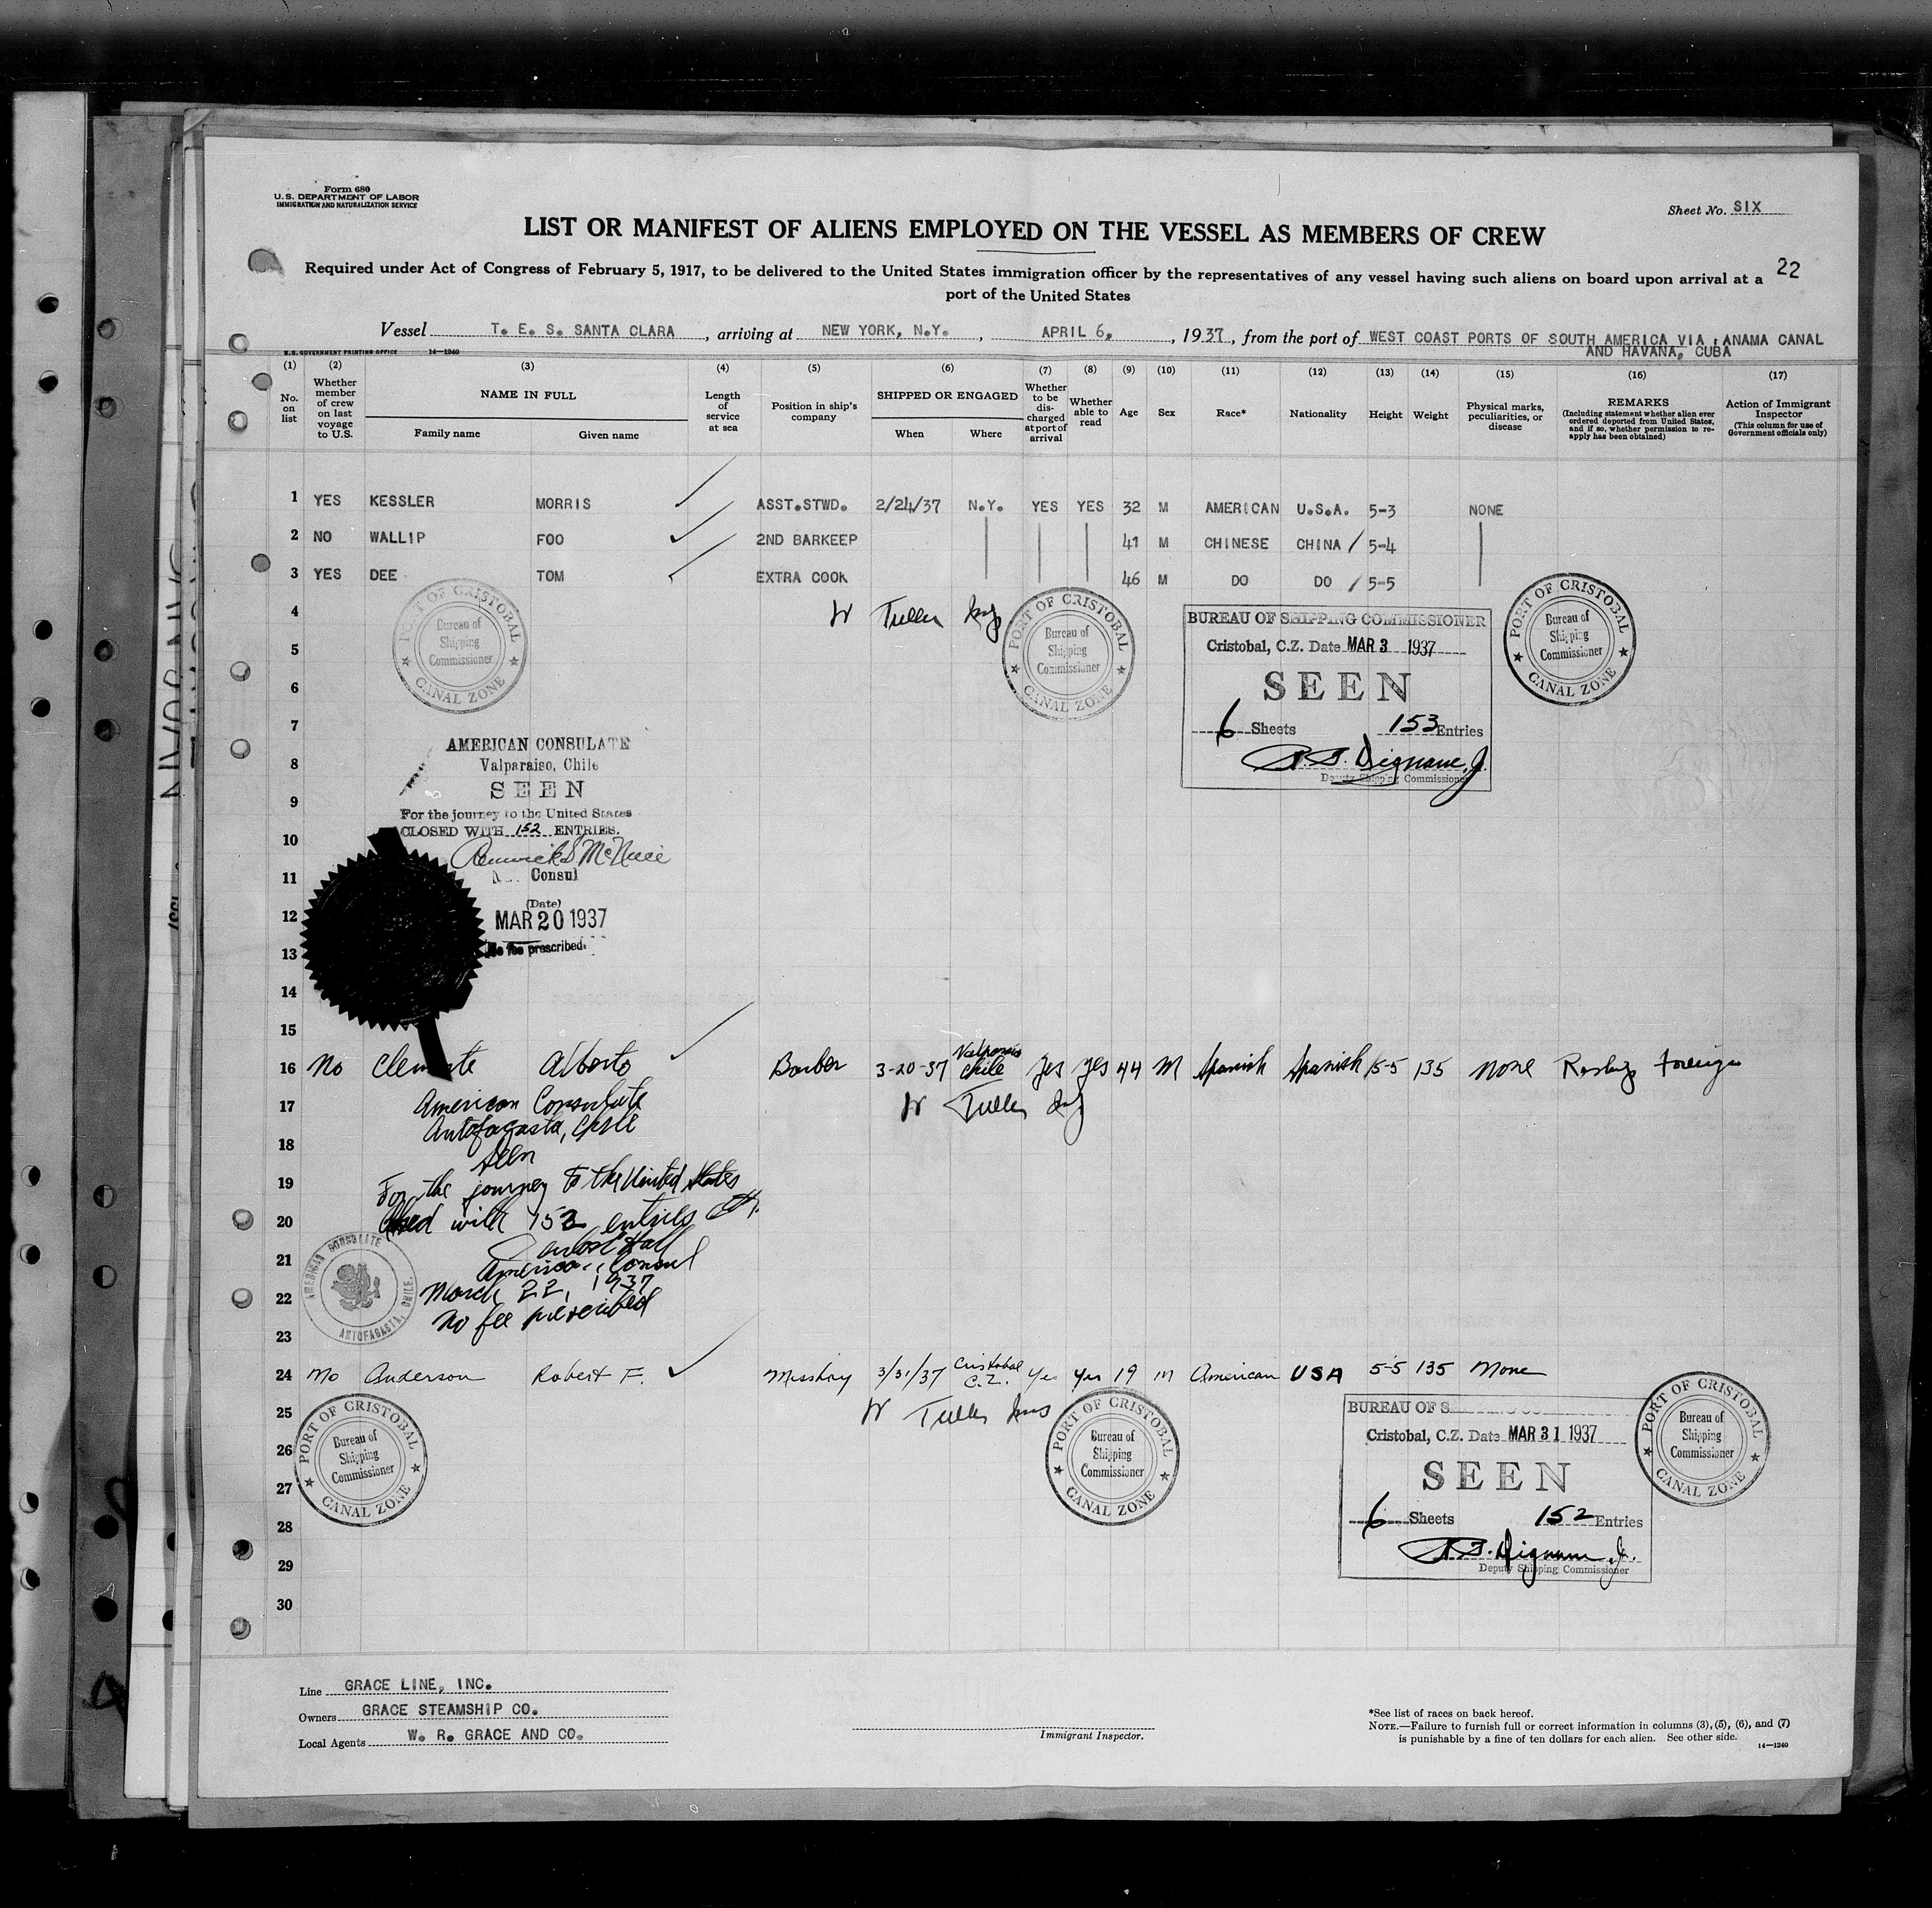 Form 680
U. S. DEPARTMENT OF LABOR
IMMIGRATION AND NATURALIZATION SERVICE
Sheet No. SIX
LIST OR MANIFEST OF ALIENS EMPLOYED ON THE VESSEL AS MEMBERS OF CREW
22
Required under Act of Congress of February 5, 1917, to be delivered to the United States immigration officer by the representatives of any vessel having such aliens on board upon arrival at a
port of the United States
Vessel T. E. S. SANTA CLARA, arriving at NEW YORK, N.Y., APRIL 6, 1937, from the port of WEST COAST PORTS OF SOUTH AMERICA VIA ANAMA CANAL
AND HAVANA, CUBA
U.S. GOVERNMENT PRINTING OFFICE 14—1240
(1) No. on list
(2) Whether member of crew on last voyage to U.S.
(3) NAME IN FULL
Family name
Given name
(4) Length of service at sea
(5) Position in ship's company
(6) SHIPPED OR ENGAGED
When
Where
(7) Whether to be discharged at port of arrival
(8) Whether able to read
(9) Age
(10) Sex
(11) Race*
(12) Nationality
(13) Height
(14) Weight
(15) Physical marks, peculiarities, or disease
(16) REMARKS (Including statement whether alien ever ordered deported from United States, and if so, whether permission to re-apply has been obtained)
(17) Action of Immigrant Inspector (This column for use of Government officials only)
1 YES KESSLER MORRIS ASST.STWD. 2/24/37 N.Y. YES YES 32 M AMERICAN U.S.A. 5-3 NONE
2 NO WALLIP FOO 2ND BARKEEP 41 M CHINESE CHINA / 5-4
3 YES DEE TOM EXTRA COOK 46 M DO DO / 5-5
4
5
6
7
8
9
10
11
12
13
14
15
PORT OF CRISTOBAL
Bureau of
Shipping
Commissioner
CANAL ZONE
W Tuller
PORT OF CRISTOBAL
Bureau of
Shipping
Commissioner
CANAL ZONE
BUREAU OF SHIPPING COMMISSIONER
Cristobal, C.Z. Date MAR 3 1937
SEEN
6 Sheets 153 Entries
Dignam, Jr.
Deputy Shipping Commissioner
PORT OF CRISTOBAL
Bureau of
Shipping
Commissioner
CANAL ZONE
AMERICAN CONSULATE
Valparaiso, Chile
SEEN
For the journey to the United States
CLOSED WITH 152 ENTRIES.
Renwick S McNiece
Consul
(Date)
MAR 20 1937
No fee prescribed.
16 No Clemente Alberto Barber 3-20-37 Valparaiso Chile yes yes 44 M Spanish Spanish 5-5 135 none Foreign
17
18
19
20
21
22
23
W Tuller
American Consulate
Antofagasta, Chile
Seen
For the journey to the United States
Closed with 153 entries
Hall
American Consul
March 22, 1937
No fee prescribed
AMERICAN CONSULATE
ANTOFAGASTA, CHILE
24 No Anderson Robert F. Messboy 3/31/37 Cristobal C.Z. Yes Yes 19 M American USA 5-5 135 None
25
26
27
28
29
30
W Tuller
PORT OF CRISTOBAL
Bureau of
Shipping
Commissioner
CANAL ZONE
PORT OF CRISTOBAL
Bureau of
Shipping
Commissioner
CANAL ZONE
BUREAU OF S
Cristobal, C.Z. Date MAR 31 1937
SEEN
6 Sheets 152 Entries
Dignam, Jr.
Deputy Shipping Commissioner
PORT OF CRISTOBAL
Bureau of
Shipping
Commissioner
CANAL ZONE
Line GRACE LINE, INC.
Owners GRACE STEAMSHIP CO.
Local Agents W. R. GRACE AND CO.
Immigrant Inspector.
*See list of races on back hereof.
NOTE.—Failure to furnish full or correct information in columns (3), (5), (6), and (7)
is punishable by a fine of ten dollars for each alien. See other side.
14—1240